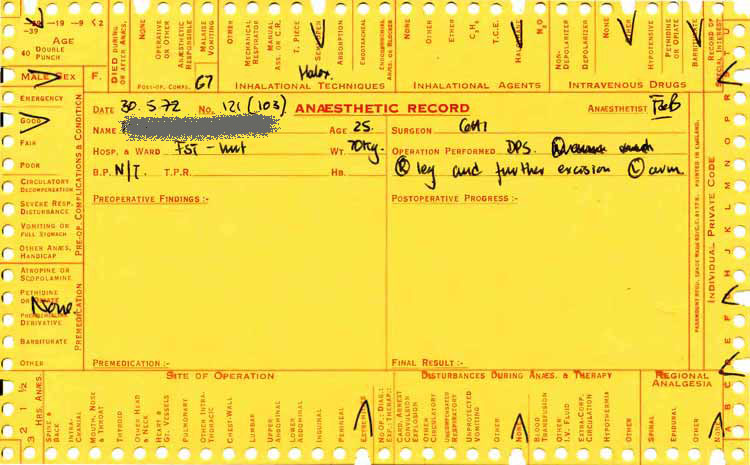 -39
-19 -9 < 2
40
AGE
DOUBLE PUNCH
MALE SEX F.
DIED DURING OR AFTER ANÆS.
NONE
OPERATIVE OR OTHER
ANÆSTHESIA RESPONSIBLE
MALAISE VOMITING
OTHER
POST-OP. COMPS.
67
MECHANICAL RESPIRATOR
MANUAL ASS. OR C.R.
T. PIECE
ABSORPTION
ENDOTRACHEAL
Halox.
INHALATIONAL TECHNIQUES
NONE
OTHER
ETHER
C₃H₆
T.C.E.
N₂O
INHALATIONAL AGENTS
NON-DEPOLARIZER
DEPOLARIZER
NONE
OTHER
HYPOTENSIVE
PETHIDINE OR OPIATE
BARBITURATE
INTRAVENOUS DRUGS
RECORD OF SPECIAL INTEREST
DATE 30.5.72 No. 121 (103) ANÆSTHETIC RECORD ANÆSTHETIST
NAME AGE 25. SURGEON
HOSP. & WARD FST - WT. 70kg. OPERATION PERFORMED DPS.
B.P. N/T. T.P.R. HB. (R) leg and further excision (L) arm
PREOPERATIVE FINDINGS :- POSTOPERATIVE PROGRESS :-
PREMEDICATION :- FINAL RESULT :-
EMERGENCY
GOOD
FAIR
POOR
CIRCULATORY DECOMPENSATION
SEVERE RESP. DISTURBANCE
VOMITING OR FULL STOMACH
OTHER ANÆS. HANDICAP
PRE-OP. COMPLICATIONS & CONDITION
ATROPINE OR SCOPOLAMINE
PETHIDINE OR OPIATE
None.
DERIVATIVE
BARBITURATE
OTHER
PREMEDICATION
PRINTED IN ENGLAND.
INDIVIDUAL PRIVATE CODE
3 2 1 ½
HRS. ANÆS.
SITE OF OPERATION
SPINE & BACK
INTRA-CRANIAL
MOUTH, NOSE & THROAT
THYROID
OTHER HEAD & NECK
HEART & GT. VESSELS
PULMONARY
OTHER INTRA-THORACIC
CHEST-WALL
LUMBAR
UPPER ABDOMINAL
LOWER ABDOMINAL
INGUINAL
PERINEAL
EXTREMITIES
DISTURBANCES DURING ANÆS. & THERAPY
NO. OF : DIS.: EXP.: THERAP.:
CARD. ARREST CONVULSION EXPLOSION
OTHER CIRCULATORY
UNEXPECTED RESPIRATORY
UNPROTECTED VOMITING
OTHER
NONE
BLOOD TRANSFUSION
OTHER I.V. FLUID
EXTRA-CORP. CIRCULATION
HYPOTHERMIA
OTHER
REGIONAL ANALGESIA
SPINAL
EPIDURAL
OTHER
NONE